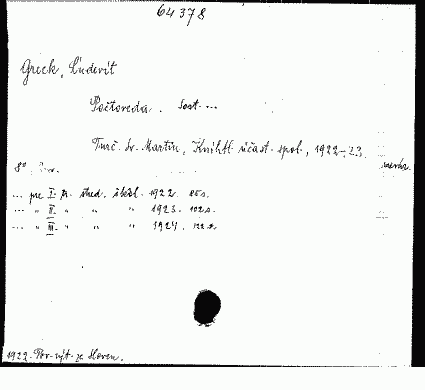 64378
Greek, Ľudevít
Počtoveda. Sost. ...
Turč. Sv. Martin, Knihtl. účast. spol., 1922-23.
8°
... pre I. tr. stred. škôl. 1922. s.
... " II. " " " 1923. 102 s.
... " III. " " " 1924. 122 s.
1922. Por. výt. za Sloven.